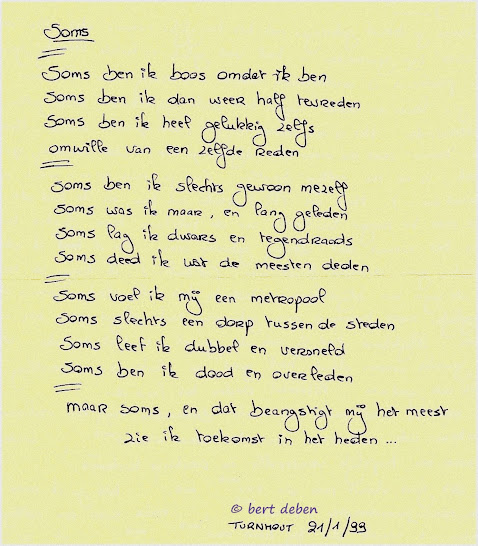 Soms
Soms ben ik boos omdat ik ben
Soms ben ik dan weer half tevreden
Soms ben ik heel gelukkig zelfs
omwille van een zelfde reden
Soms ben ik slechts gewoon mezelf
Soms was ik maar, en lang geleden
Soms lag ik dwars en tegendraads
Soms deed ik wat de meesten deden
Soms voel ik mij een metropool
Soms slechts een dorp tussen de steden
Soms leef ik dubbel en versneld
Soms ben ik dood en overleden
maar soms, en dat beangstigt mij het meest
zie ik toekomst in het heden ...
© bert deben
TURNHOUT 21/1/99